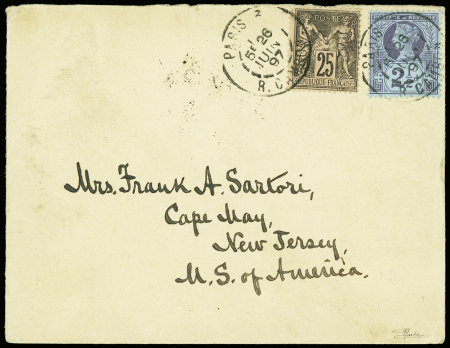 PARIS
5E/ 26
JUIN
97
POSTE
25
RÉPUBLIQUE FRANÇAISE
PARIS
26
POSTAGE & REVENUE
Mrs. Frank A. Sartori,
Cape May,
New Jersey,
U.S. of America.